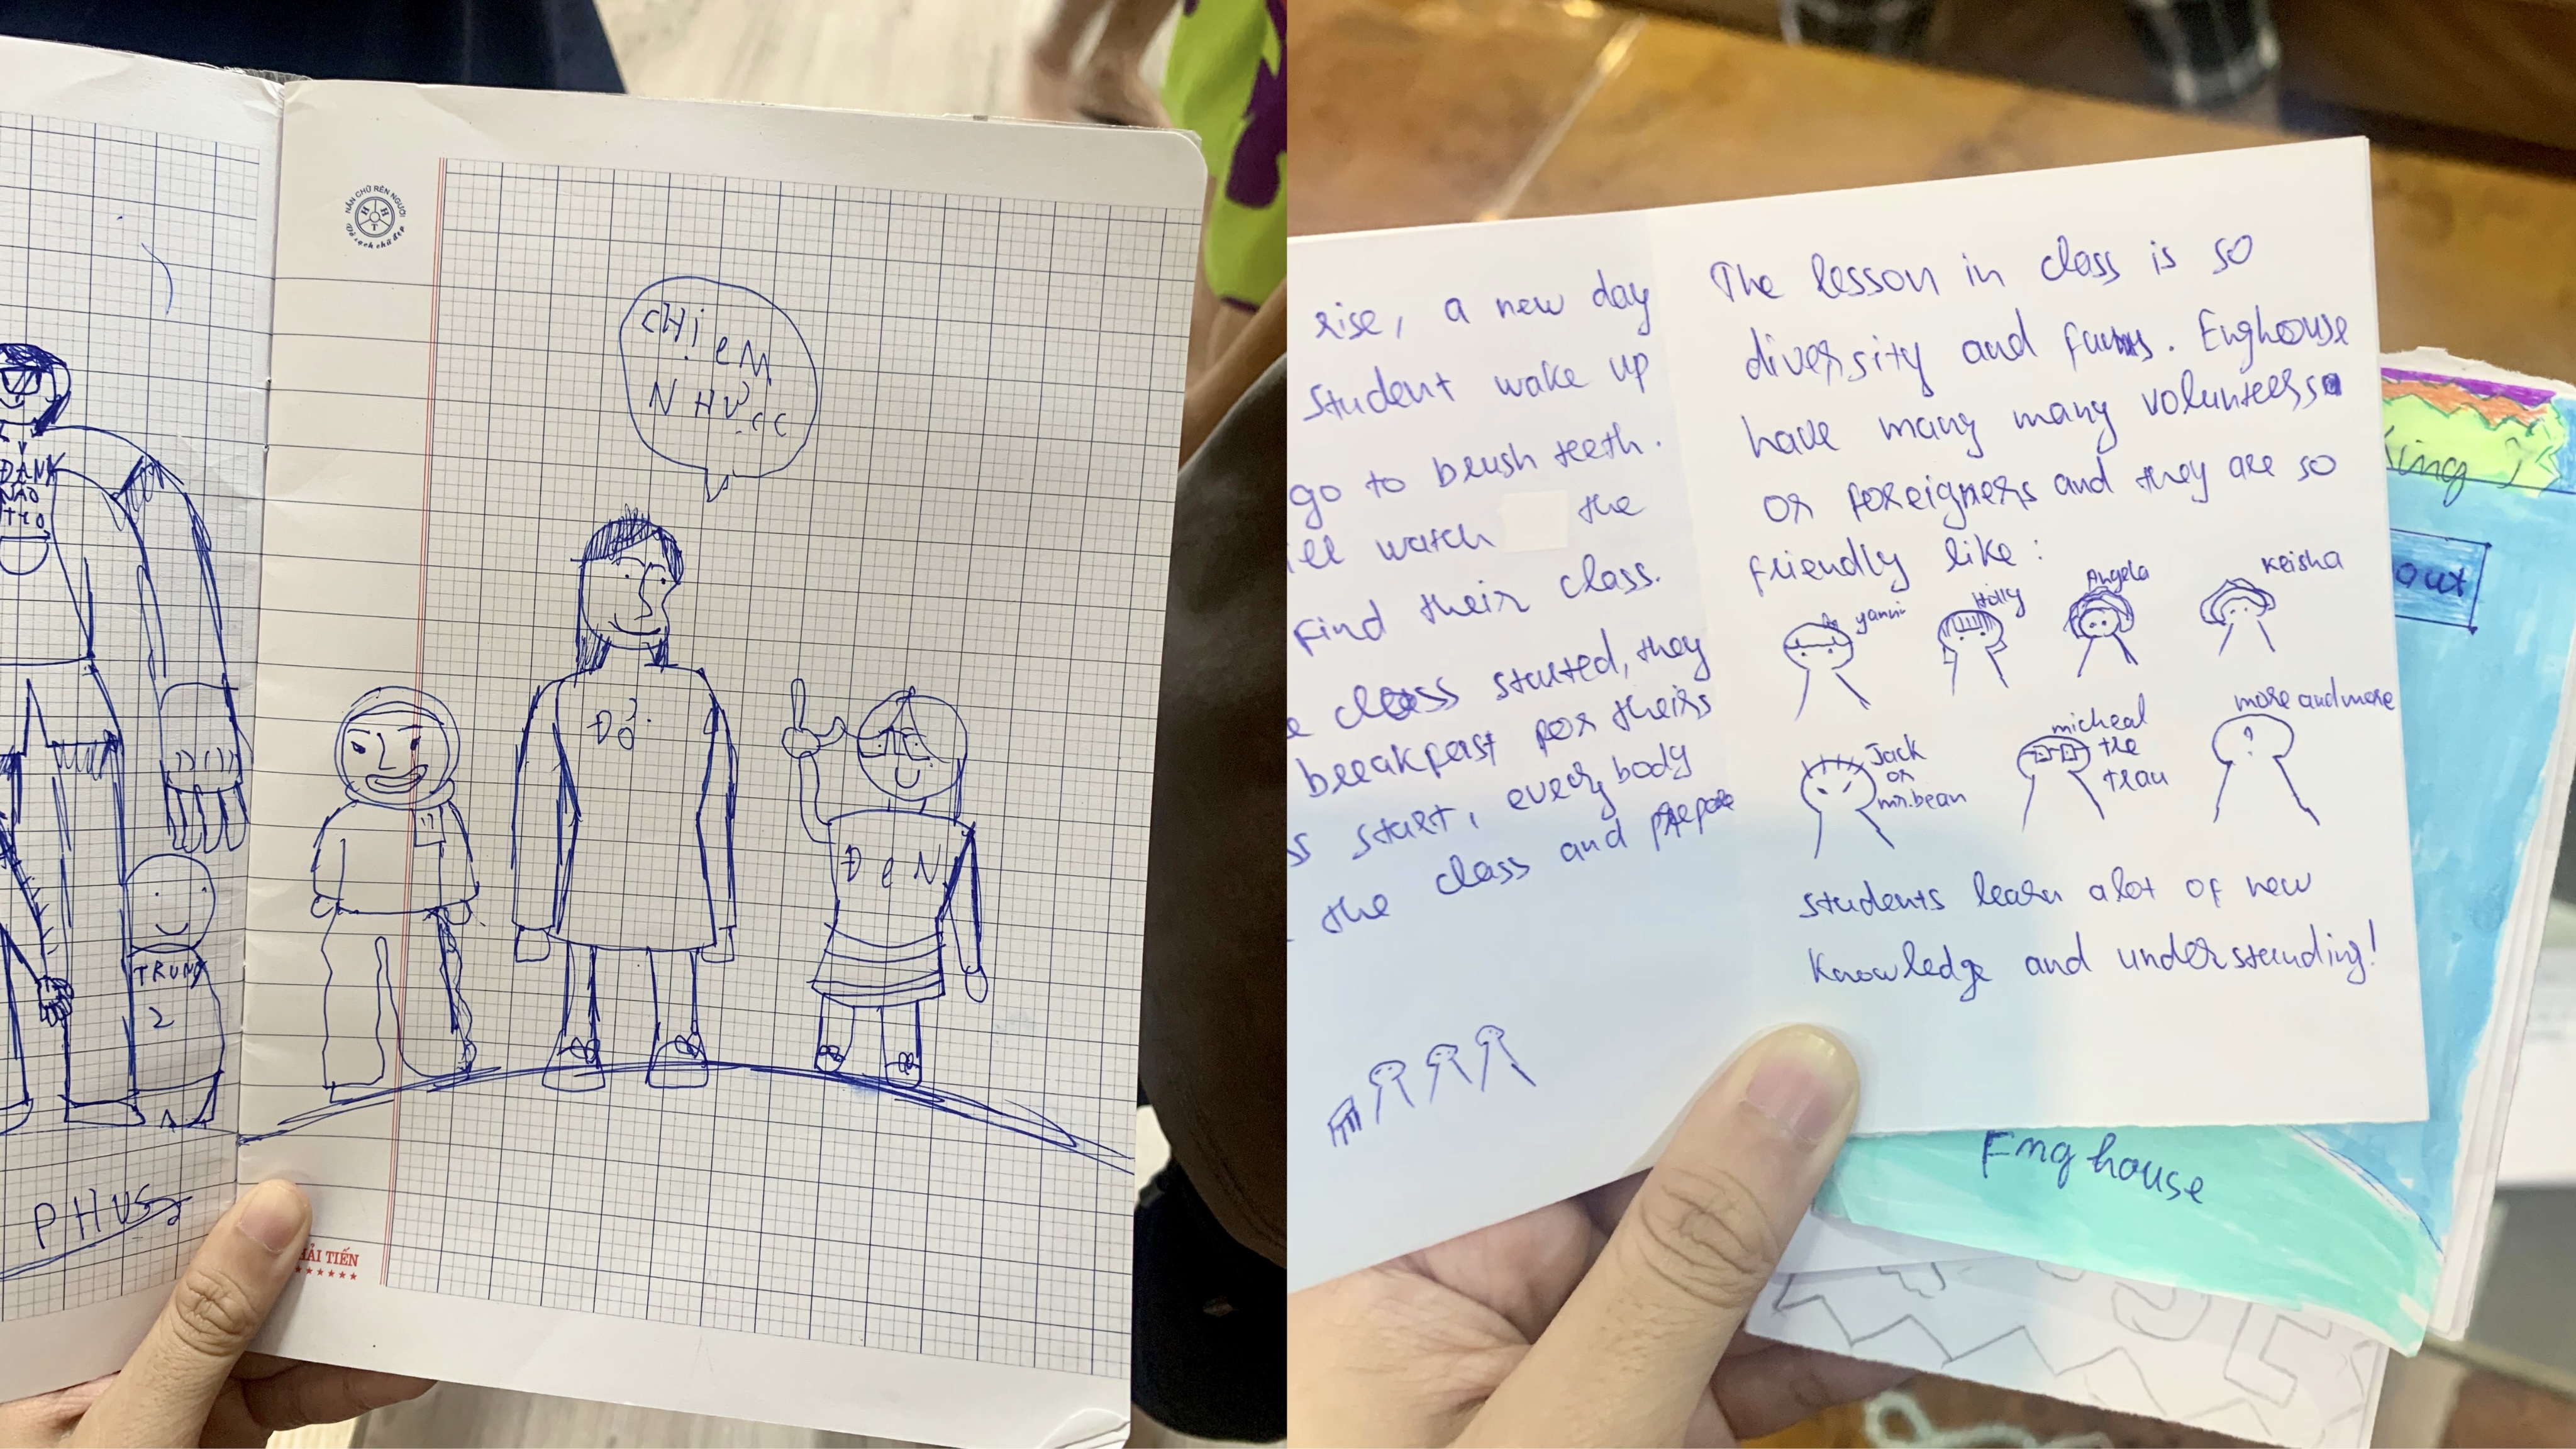 NẮN CHỮ RÈN NGƯỜI
Vở sạch chữ đẹp
CHỊ eM
NHƯ CC
ĐỎ
ĐeN
ĐẦNH
NÀO
TRUNG
2
PHUS
HẢI TIẾN
rise, a new day
student wake up
go to brush teeth.
ill watch the
Find their class.
e class started, they
breakfast for theirs
ss start, everybody
the class and prepare
The lesson in class is so
diversity and funny. Enghouse
have many many volunteers
or foreigners and they are so
friendly like:
yanni
Holly
Angela
Keisha
Jack
or
mr.bean
micheal
the
trau
more and more
?
students learn alot of new
knowledge and understanding!
king
out
Enghouse